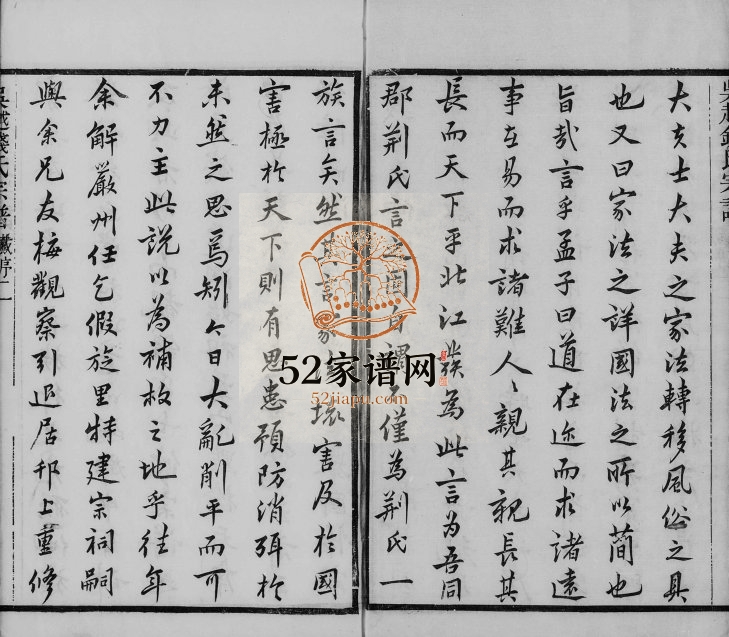 大夫士大夫之家法轉移風俗之具
也又曰家法之詳國法之所以簡也
旨哉言乎孟子曰道在迩而求諸遠
事在易而求諸難人〻親其親長其
長而天下平北江 為此言為吾同
郡荊氏言之 僅為荊氏一
族言矣然其言家 壞害及於國
害極於天下則有思患預防消弭於
未然之思焉矧今日大亂削平而可
不力主此說以為補救之地乎往年
余解嚴州任乞假旋里特建宗祠嗣
與余兄友梅觀察引退居邗上重修
吳越錢氏宗譜
吳越錢氏宗譜 序二
52家谱网
52jiapu.com